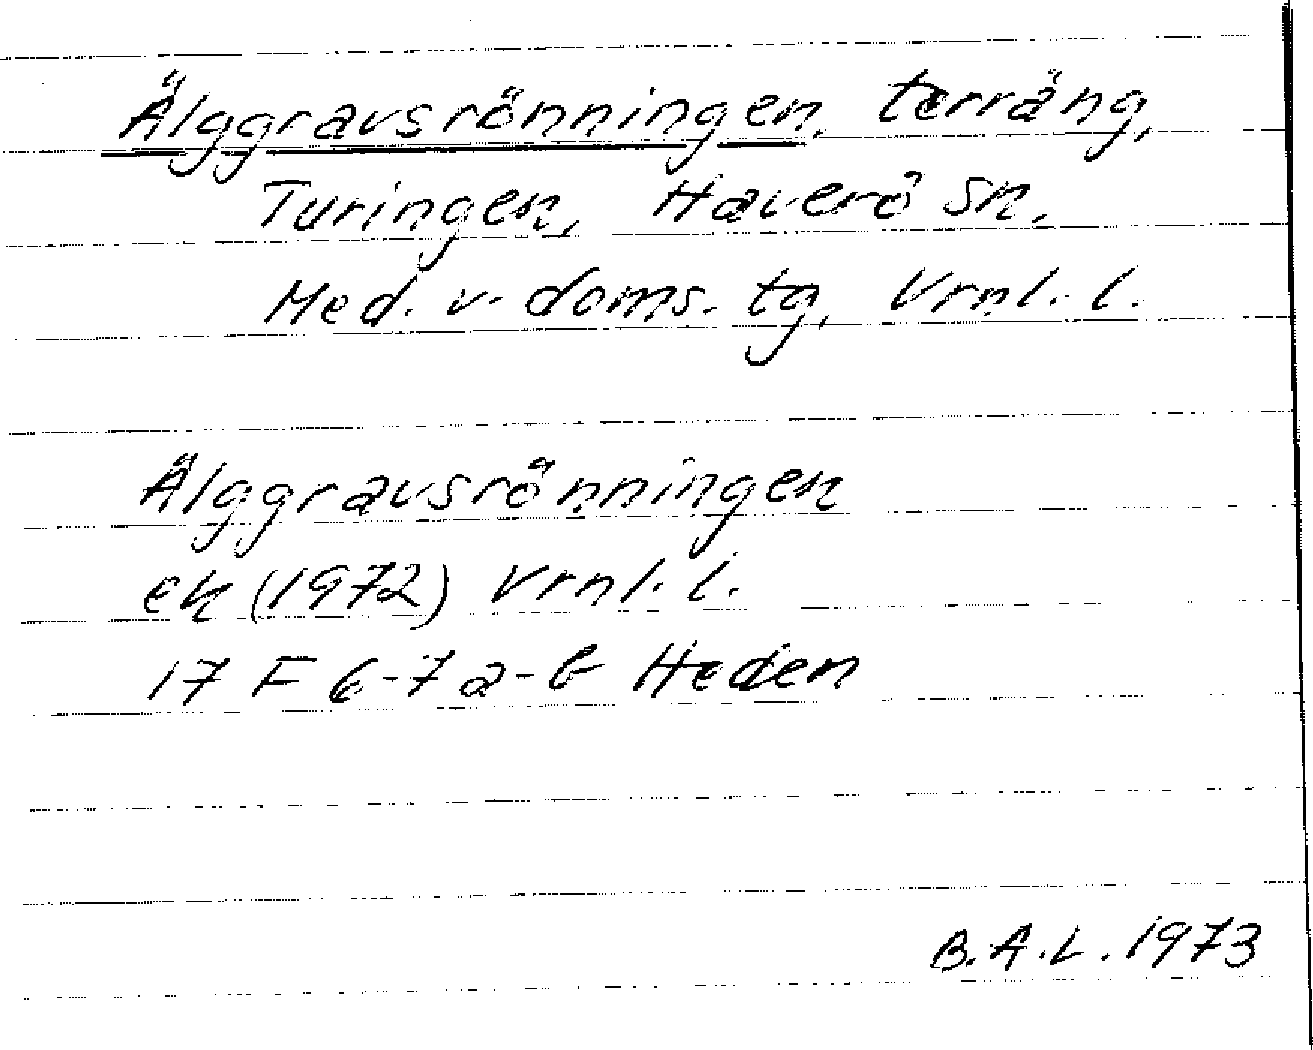 Älggravsrönningen, terräng,
Turingen, Haverö sn.
Med. v. doms. tg, Vrnl. l.
Älggravsrönningen
ek (1972) Vrnl. l.
17 F 6-7 a-b Heden
B.A.L. 1973